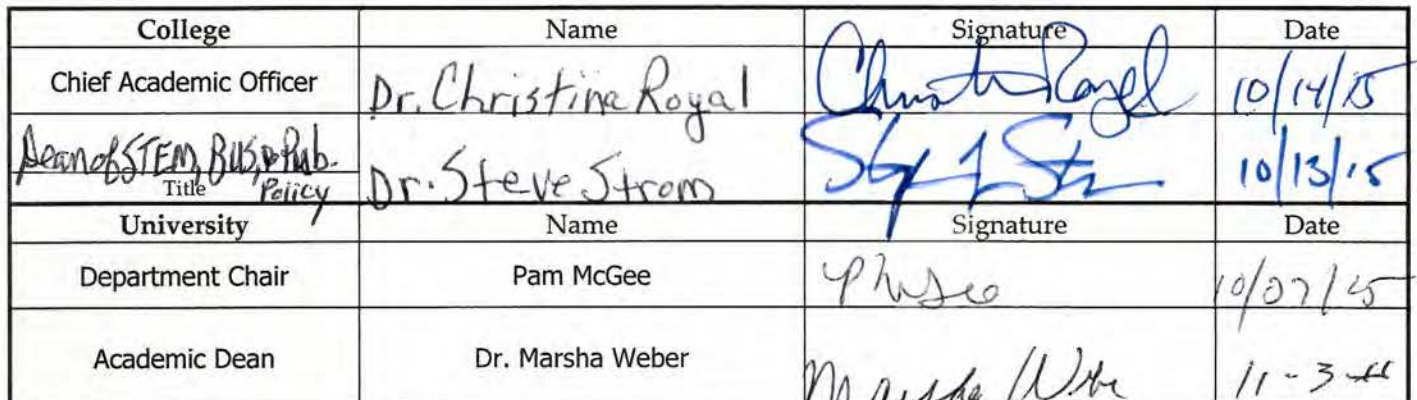 College Name Signature Date
Chief Academic Officer Dr. Christine Royal Christine Royal 10/14/15
Dean of STEM, BUS, & Pub. Policy
Title Dr. Steve Strom 10/13/15
University Name Signature Date
Department Chair Pam McGee 10/07/15
Academic Dean Dr. Marsha Weber Marsha Weber 11-3-